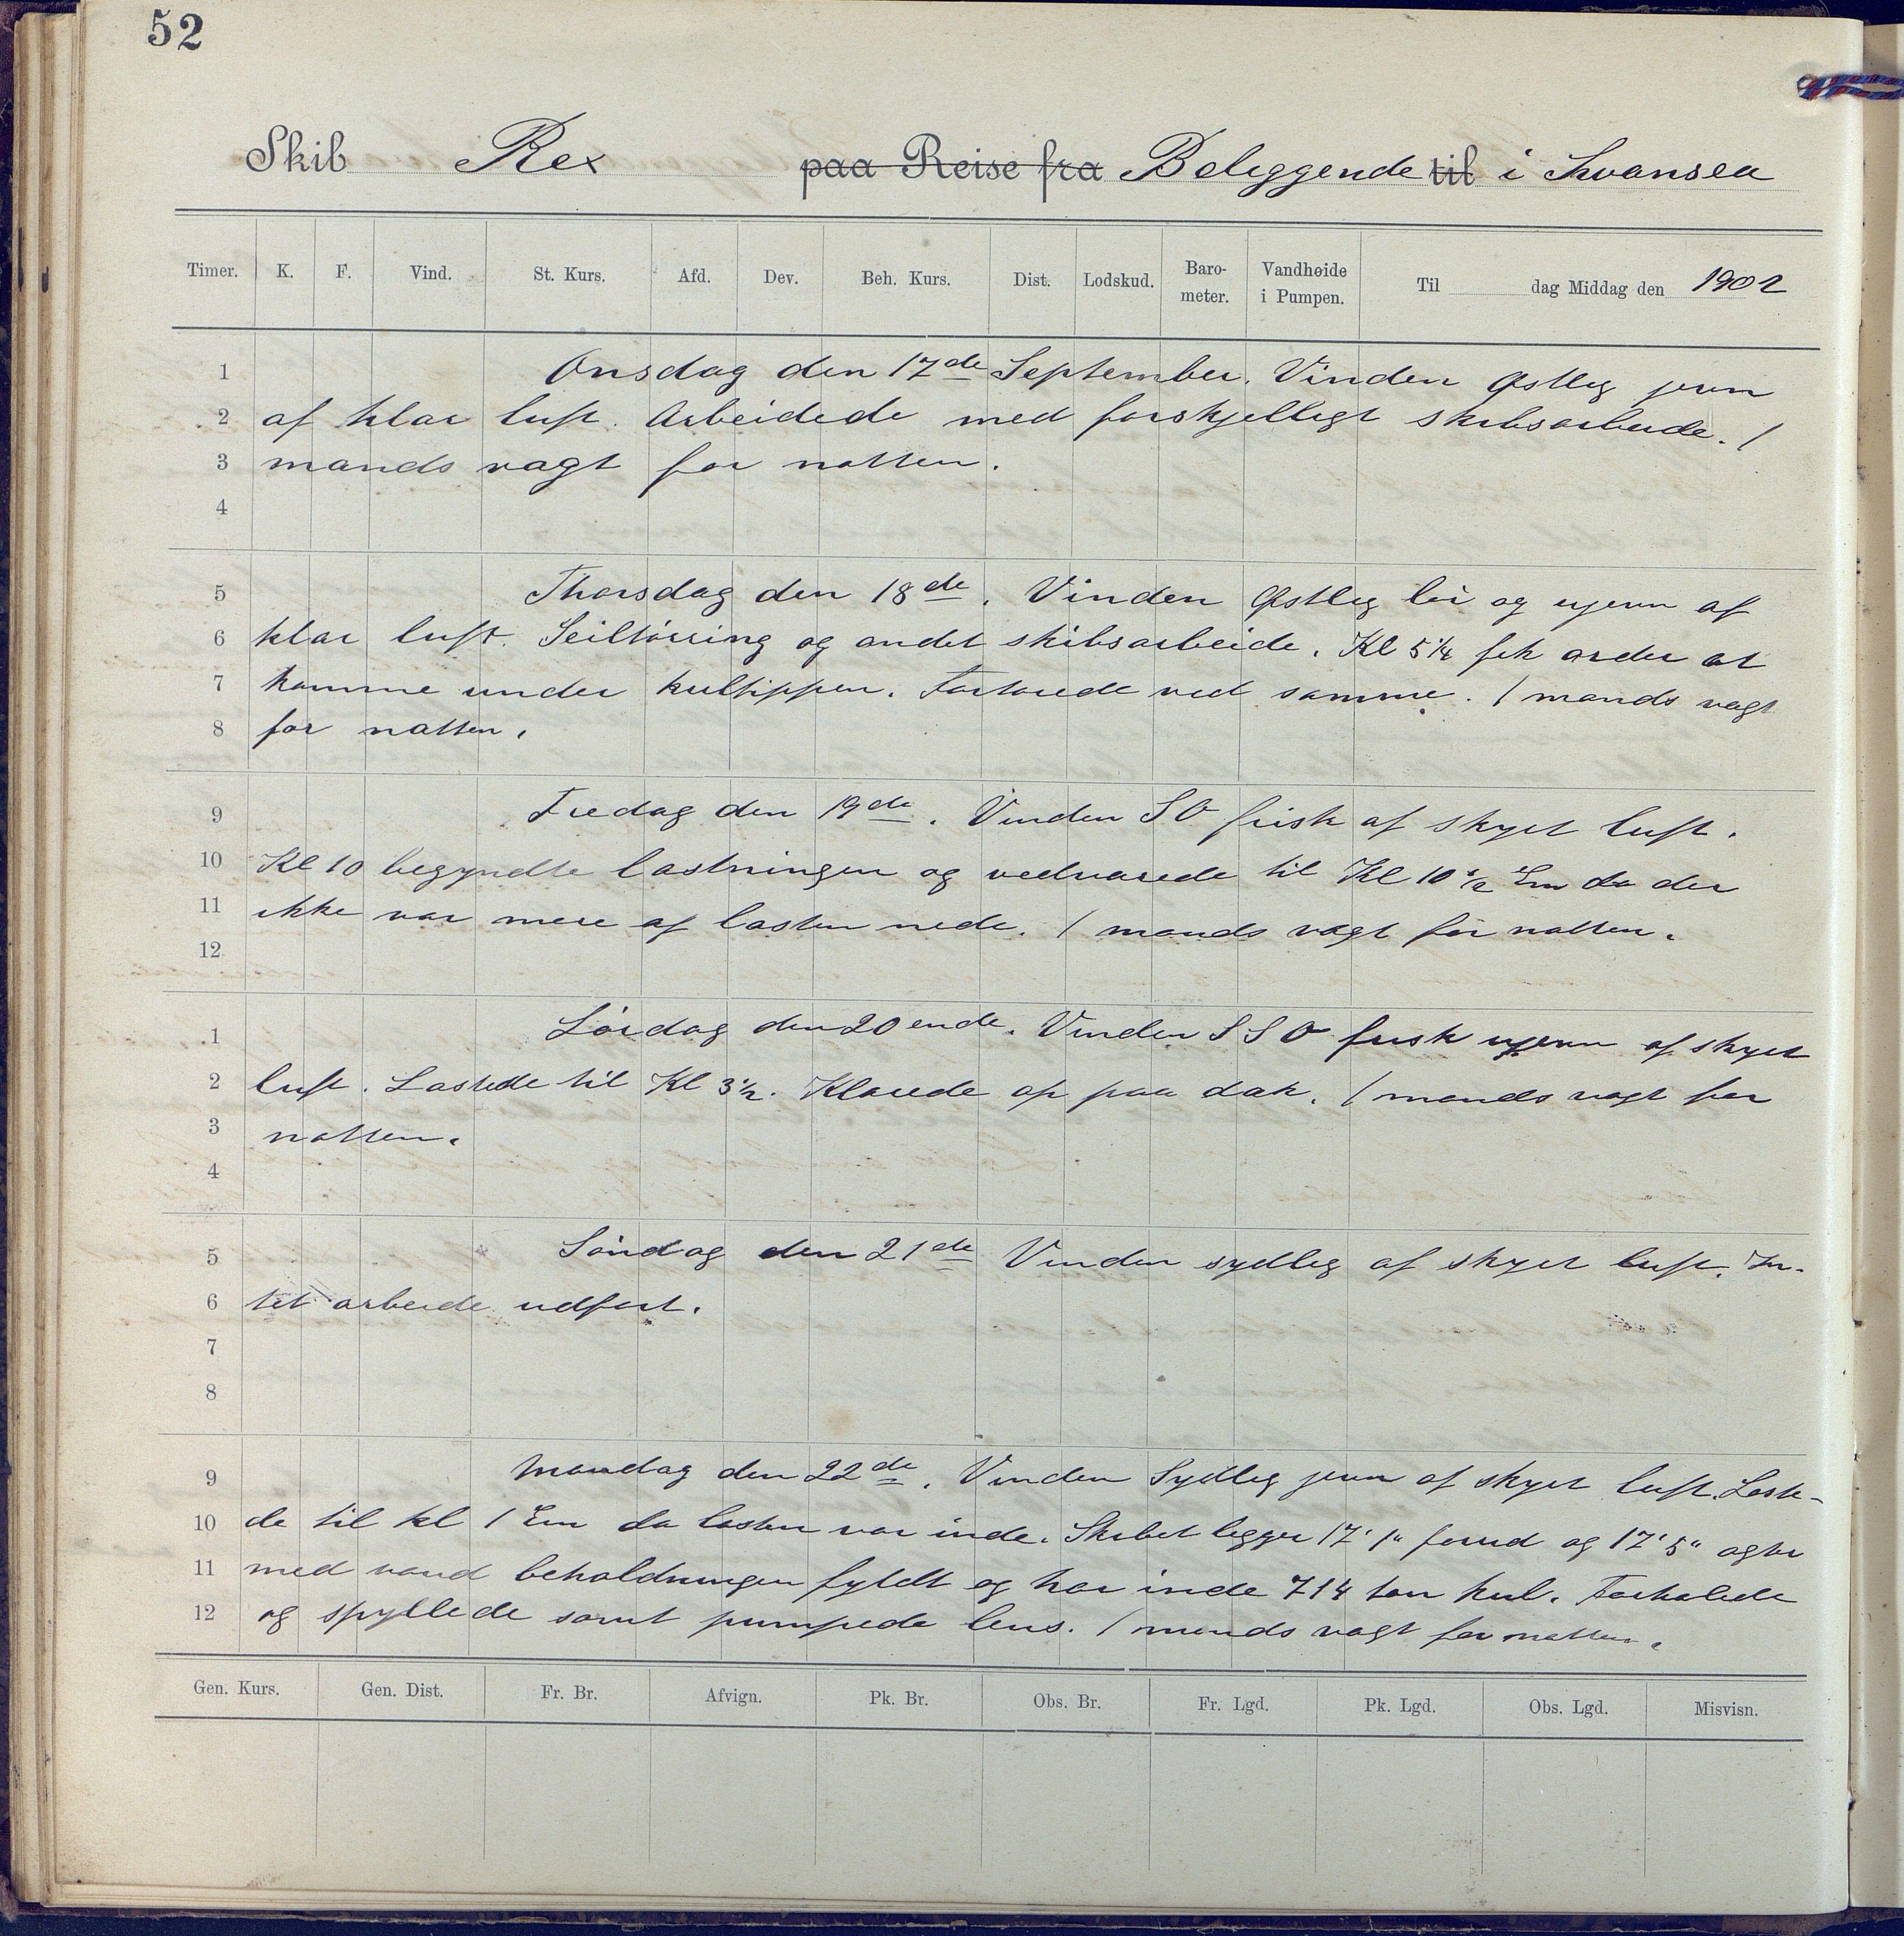 52
Skib Rex paa Reise fra Beliggende til i Swansea
Timer. K. F. Vind. St. Kurs. Afd. Dev. Beh. Kurs. Dist. Lodskud. Baro- meter. Vandhøide i Pumpen. Til dag Middag den 1902
1 Onsdag den 17de September. Vinden Østlig jevn
2 af klar luft. Arbeidede med forskjelligt skibsarbeide. 1
3 mands vagt for natten.
4
5 Thorsdag den 18de. Vinden Østlig lör og ujevn af
6 klar luft. Seiltörring og andet skibsarbeide. Kl 5 1/4 fik order at
7 komme under kultippen. Fortöiede ved samme. 1 mands vagt
8 for natten.
9 Fredag den 19de. Vinden SO frisk af skyet luft.
10 Kl 10 begyndte lastningen og vedvarede til Kl 10 1/2 Em da der
11 ikke var mere af lasten nede. 1 mands vagt for natten.
12
1 Lördag den 20ende. Vinden SSO frisk ujevn af skyet
2 luft. Lastede til Kl 3 1/2. Klarede op paa dæk. 1 mands vagt for
3 natten.
4
5 Söndag den 21de Vinden sydlig af skyet luft. In-
6 tet arbeide udfört.
7
8
9 Mandag den 22de. Vinden Sydlig jevn af skyet luft. Laste-
10 de til kl 1 Em da lasten var inde. Skibet ligger 17' 1" forud og 17' 5" agter
11 med vand beholdningen fyldt og har inde 714 ton kul. Forhalede
12 og spyllede samt pumpede lens. 1 mands vagt for natten.
Gen. Kurs. Gen. Dist. Fr. Br. Afvign. Pk. Br. Obs. Br. Fr. Lgd. Pk. Lgd. Obs. Lgd. Misvisn.